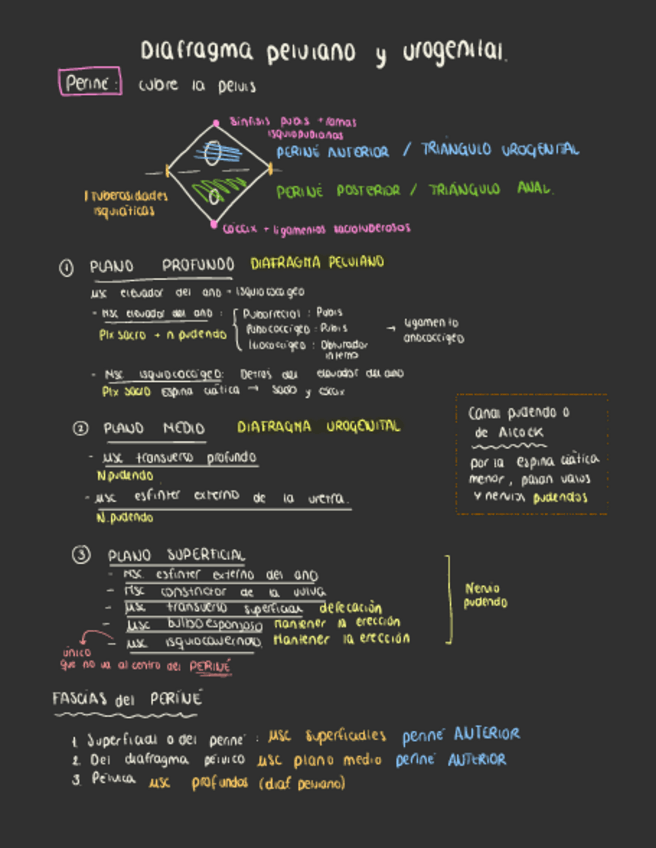 Diafragma pelviano y urogenital.
Periné: cubre la pelvis
Sínfisis pubis + ramas
isquiopubianas
PERINÉ ANTERIOR / TRIÁNGULO UROGENITAL
Tuberosidades
isquiáticas
PERINÉ POSTERIOR / TRIÁNGULO ANAL.
cóccix + ligamentos sacrotuberosos
① PLANO PROFUNDO DIAFRAGMA PELVIANO
MSC elevador del ano + isquiococcígeo
- MSC elevador del ano :
Plx sacro + n pudendo
Puborrectal : Pubis
Pubococcígeo : Pubis
Iliococcígeo : Obturador
interno
→ ligamento
anococcígeo
- MSC isquiococcígeo: Detrás del elevador del ano
Plx sacro Espina ciática → sacro y coxis
② PLANO MEDIO DIAFRAGMA UROGENITAL
- MSC transverso profundo
N.pudendo
- MSC esfínter externo de la uretra.
N.pudendo
Canal pudendo o
de Alcock
por la espina ciática
menor, pasan vasos
y nervios pudendos
③ PLANO SUPERFICIAL
- MSC. esfínter externo del ano
- MSC constrictor de la vulva
- MSC transverso superficial defecación
- MSC bulboesponjoso mantener la erección
- MSC isquiocavernoso. Mantener la erección
Nervio
pudendo
único
que no va al centro del PERINÉ
FASCIAS del PERINÉ
1. Superficial o del periné : MSC superficiales periné ANTERIOR
2. Del diafragma pélvico MSC plano medio periné ANTERIOR
3. Pélvica MSC profundos (diaf pelviano)